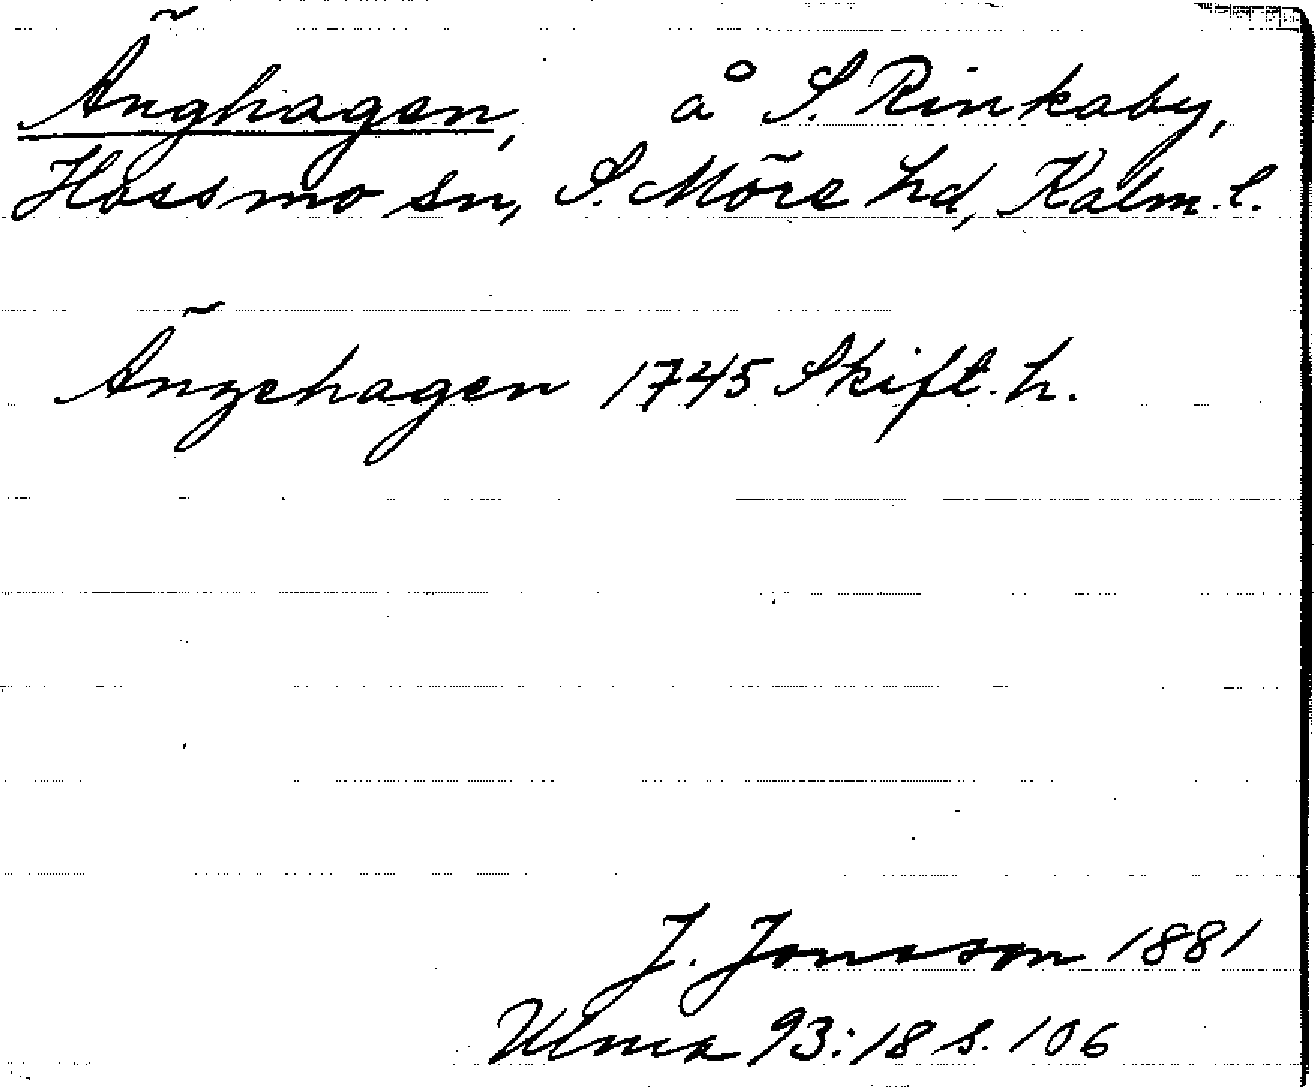 Änghagen, å S. Rinkaby,
Hossmo sn, S. Möre hd, Kalm. l.
Ängehagen 1745 Skift. h.
J. Jonsson 1881
Ulma 93:18 s. 106